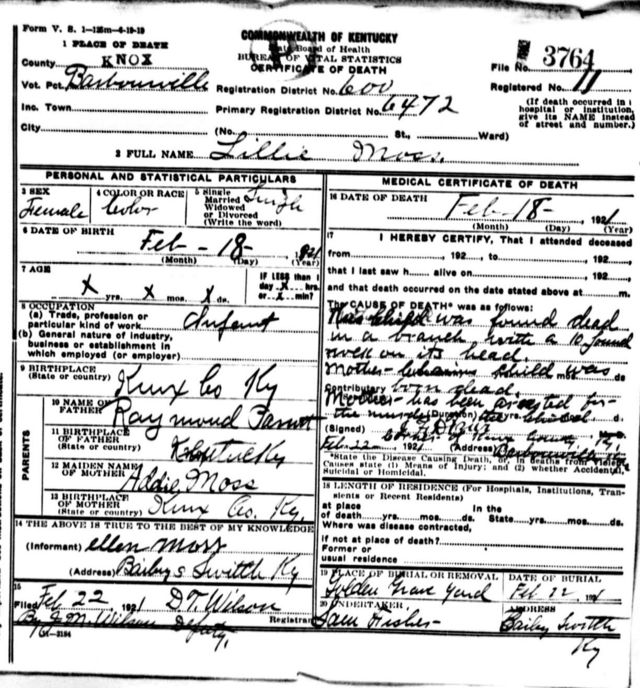 Form V. S. 1-125m-4-19-19
COMMONWEALTH OF KENTUCKY
State Board of Health
BUREAU OF VITAL STATISTICS
CERTIFICATE OF DEATH
1 PLACE OF DEATH
County KNOX
Vot. Pct. Barbourville
Inc. Town
City
Registration District No. 600
Primary Registration District No. 6472
(No. St., Ward)
File No. 3764
Registered No. 11
(If death occurred in a hospital or institution, give its NAME instead of street and number.)
2 FULL NAME Lillie Moss.
PERSONAL AND STATISTICAL PARTICULARS
3 SEX
Female
4 COLOR OR RACE
Color
5 Single
Married
Widowed
or Divorced
(Write the word)
Single
6 DATE OF BIRTH
Feb - 18 - 1921
(Month) (Day) (Year)
7 AGE
X yrs. X mos. X ds.
IF LESS than 1
day X hrs.
or X min?
8 OCCUPATION
(a) Trade, profession or
particular kind of work Infant
(b) General nature of industry,
business or establishment in
which employed (or employer)
9 BIRTHPLACE
(State or country) Knox Co Ky
PARENTS
10 NAME OF
FATHER Raymond
11 BIRTHPLACE
OF FATHER
(State or country) Kentucky
12 MAIDEN NAME
OF MOTHER Addie Moss
13 BIRTHPLACE
OF MOTHER
(State or country) Knox Co. Ky.
14 THE ABOVE IS TRUE TO THE BEST OF MY KNOWLEDGE
(Informant) Ellen Moss
(Address) Baileys Switch Ky
15
Filed Feb 22, 1921 D.T. Wilson
Registrar
By M. Wilson Deputy
MEDICAL CERTIFICATE OF DEATH
16 DATE OF DEATH
Feb - 18 - , 1921
(Month) (Day) (Year)
17 I HEREBY CERTIFY, That I attended deceased
from , 192 , to , 192 ,
that I last saw h alive on , 192 ,
and that death occurred on the date stated above at m.
The CAUSE OF DEATH* was as follows:
This child was found dead
in a branch with a 10 pound
rock on its head.
Mother claims child was mos. ds.
Contributory born dead.
Mother has been arrested for
the murder of the child.
(Duration) yrs. mos. ds.
(Signed)
Feb-22-, 1921 Coroner of Knox County, Ky.
(Address) Barbourville Ky
*State the Disease Causing Death, or, in deaths from Violent
Causes state (1) Means of Injury; and (2) whether Accidental,
Suicidal or Homicidal.
18 LENGTH OF RESIDENCE (For Hospitals, Institutions, Tran-
sients or Recent Residents)
at place In the
of death yrs. mos. ds. State yrs. mos. ds.
Where was disease contracted,
if not at place of death?
Former or
usual residence
19 PLACE OF BURIAL OR REMOVAL
Golden Grave Yard
DATE OF BURIAL
Feb 22, 1921
20 UNDERTAKER
Sam
ADDRESS
Bailey Switch
Ky